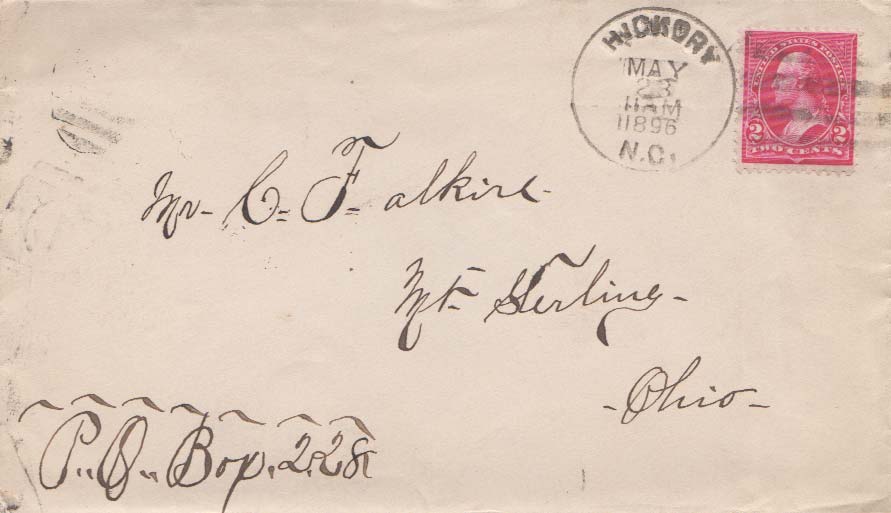 HICKORY
MAY
23
11 AM
1896
N.C.
UNITED STATES POSTAGE
2 2
TWO CENTS
Mr. C. F. alkire
Mt. Sterling
Ohio
P. O. Box. 228